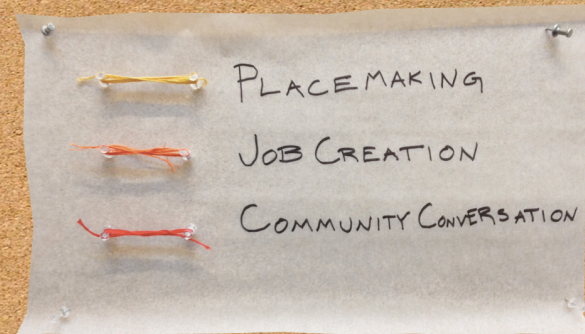 PLACEMAKING
JOB CREATION
COMMUNITY CONVERSATION